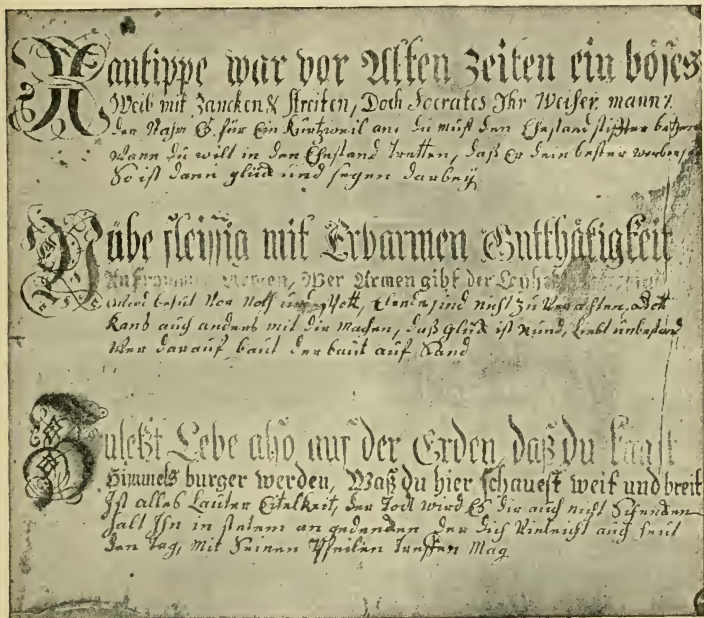 Xantippe war vor Alten Zeiten ein böses
Weib mit Zancken & Streiten, Doch Socrates Ihr Weiser mann
der Nahm Es für Ein Kurtzweil an: du must den Ehestand stiffter
Wann du wilt in den Ehestand tretten, daß Er dein bester
So ist dann glück und segen darbey
Yübe fleissig mit Erbarmen Gutthätigkeit
Armen, Wer Armen gibt der
wird befreit Von Noth und Spott, Elende sind nicht zu Verachten, Gott
Kans auch anders mit dir machen, daß glück ist Rund,
Wer darauf baut der baut auf Sand
Zuletzt Lebe also auf der Erden, daß du kanst
Himmels burger werden, Waß du hier schauest weit und breit
Ist alles Lauter Eitelkeit, der Todt wird Es dir auch nicht Schencken
halt Ihn in stetem an gedencken der dich Vieleicht auch heut
den Tag, Mit Seinen Pfeilen treffen Mag